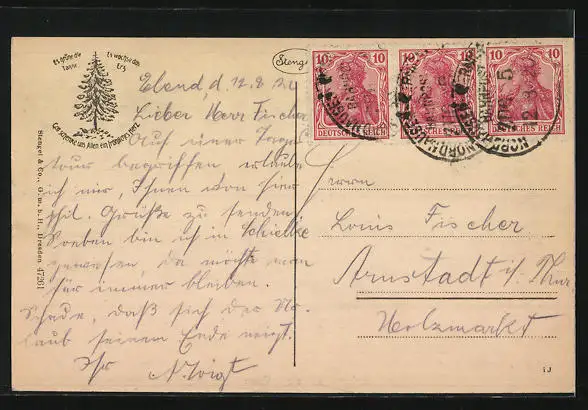 Es grüne die Tanne
Es wachse das Erz
Gott schenke uns Allen ein fröhliches Herz
Stengel & Co., G.m.b.H., Dresden 47261
Steng
10 10
DEUTSCHES REICH
10
DEUTSCHES REICH
10 10
DEUTSCHES REICH
Elend, d. 12.8.20
Lieber Herr Fischer
Auf einer Tages
tour begriffen erlaube
ich mir, Ihnen von hier
phil. Grüße zu senden
Soeben bin ich in Schierke
gewesen, da möchte man
für immer bleiben.
Schade, daß sich der Ur-
laub seinem Ende neigt.
Ihr A. Voigt
Herrn
Louis Fischer
Arnstadt i/Thür
Holzmarkt